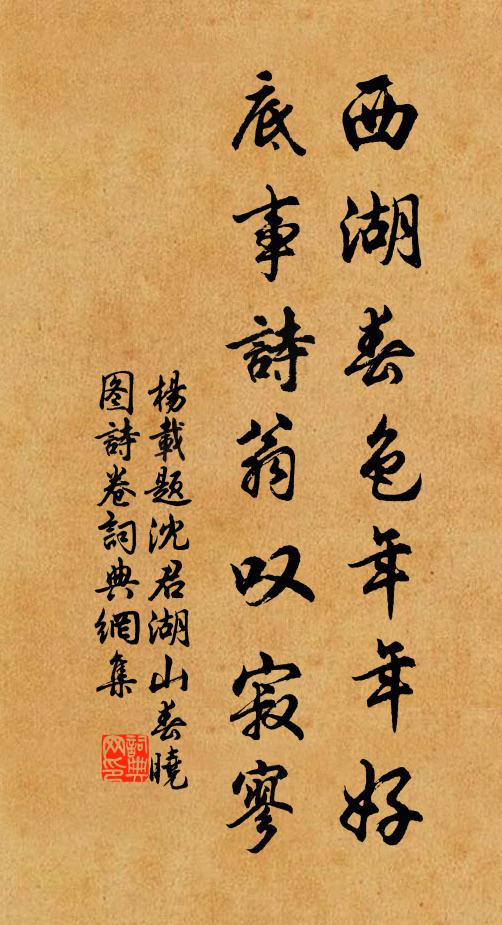 西湖春色年年好
底事詩翁叹寂寥
楊載题沈君湖山春曉
图詩卷詞典網集
詞典网印